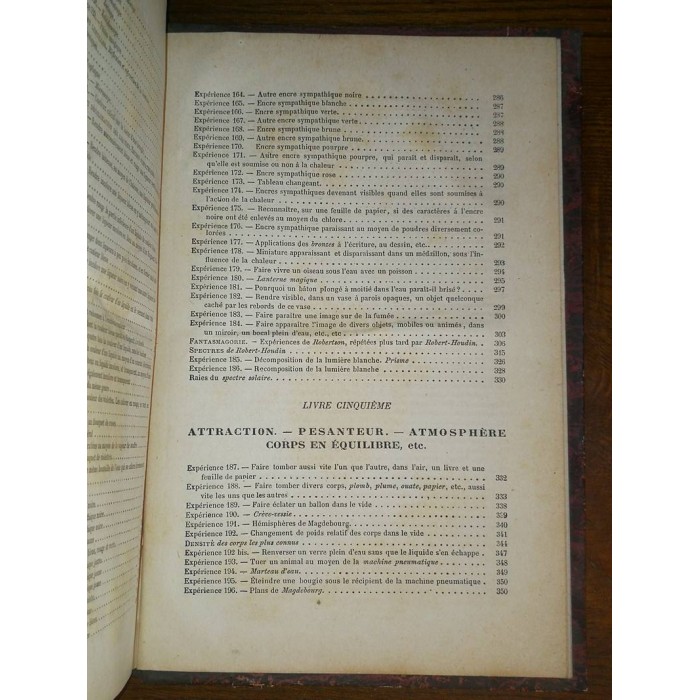 Expérience 164. — Autre encre sympathique noire 286
Expérience 165. — Encre sympathique blanche 287
Expérience 166. — Encre sympathique verte. 287
Expérience 167. — Autre encre sympathique verte. 288
Expérience 168. — Encre sympathique brune 288
Expérience 169. — Autre encre sympathique brune. 288
Expérience 170. Encre sympathique pourpre 289
Expérience 171. — Autre encre sympathique pourpre, qui paraît et disparaît, selon
qu'elle est soumise ou non à la chaleur 289
Expérience 172. — Encre sympathique rose 290
Expérience 173. — Tableau changeant. 290
Expérience 174. — Encres sympathiques devenant visibles quand elles sont soumises à
l'action de la chaleur 290
Expérience 175. — Reconnaître, sur une feuille de papier, si des caractères à l'encre
noire ont été enlevés au moyen du chlore. 291
Expérience 176. — Encre sympathique paraissant au moyen de poudres diversement co-
lorées. 291
Expérience 177. — Applications des bronzes à l'écriture, au dessin, etc. 292
Expérience 178. — Miniature apparaissant et disparaissant dans un médaillon, sous l'in-
fluence de la chaleur 293
Expérience 179. — Faire vivre un oiseau sous l'eau avec un poisson 294
Expérience 180. — Lanterne magique 295
Expérience 181. — Pourquoi un bâton plongé à moitié dans l'eau paraît-il brisé? 297
Expérience 182. — Rendre visible, dans un vase à parois opaques, un objet quelconque
caché par les rebords de ce vase 299
Expérience 183. — Faire paraître une image sur de la fumée. 300
Expérience 184. — Faire apparaître l'image de divers objets, mobiles ou animés, dans
un miroir, un bocal plein d'eau, etc., etc 303
FANTASMAGORIE. — Expériences de Robertson, répétées plus tard par Robert-Houdin. 306
SPECTRES de Robert-Houdin 315
Expérience 185. — Décomposition de la lumière blanche. Prisme 326
Expérience 186. — Recomposition de la lumière blanche 328
Raies du spectre solaire. 330
LIVRE CINQUIÈME
ATTRACTION. — PESANTEUR. — ATMOSPHÈRE
CORPS EN ÉQUILIBRE, etc.
Expérience 187. — Faire tomber aussi vite l'un que l'autre, dans l'air, un livre et une
feuille de papier 332
Expérience 188. — Faire tomber divers corps, plomb, plume, ouate, papier, etc., aussi
vite les uns que les autres 333
Expérience 189. — Faire éclater un ballon dans le vide 338
Expérience 190. — Crève-vessie 339
Expérience 191. — Hémisphères de Magdebourg. 340
Expérience 192. — Changement de poids relatif des corps dans le vide 341
DENSITÉ des corps les plus connus 344
Expérience 192 bis. — Renverser un verre plein d'eau sans que le liquide s'échappe 347
Expérience 193. — Tuer un animal au moyen de la machine pneumatique 348
Expérience 194. — Marteau d'eau. 349
Expérience 195. — Éteindre une bougie sous le récipient de la machine pneumatique 350
Expérience 196. — Plans de Magdebourg. 350